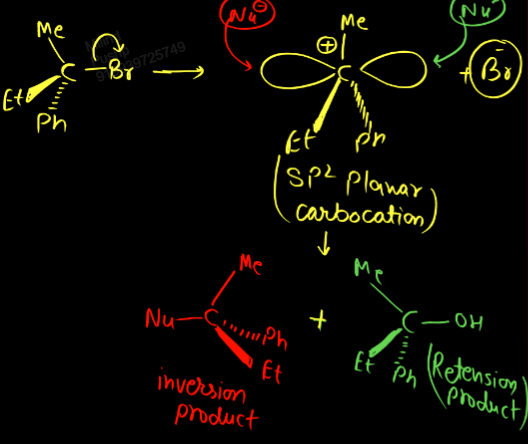 Me
C - Br
Et
Ph
Nu⊖
⊕
Me
Nu
C
+ Br⁻
Et
Ph
(SP² Planar
carbocation)
Me
Nu - C
Ph
Et
inversion
product
+
Me
C - OH
Et
Ph
(Retension
product)